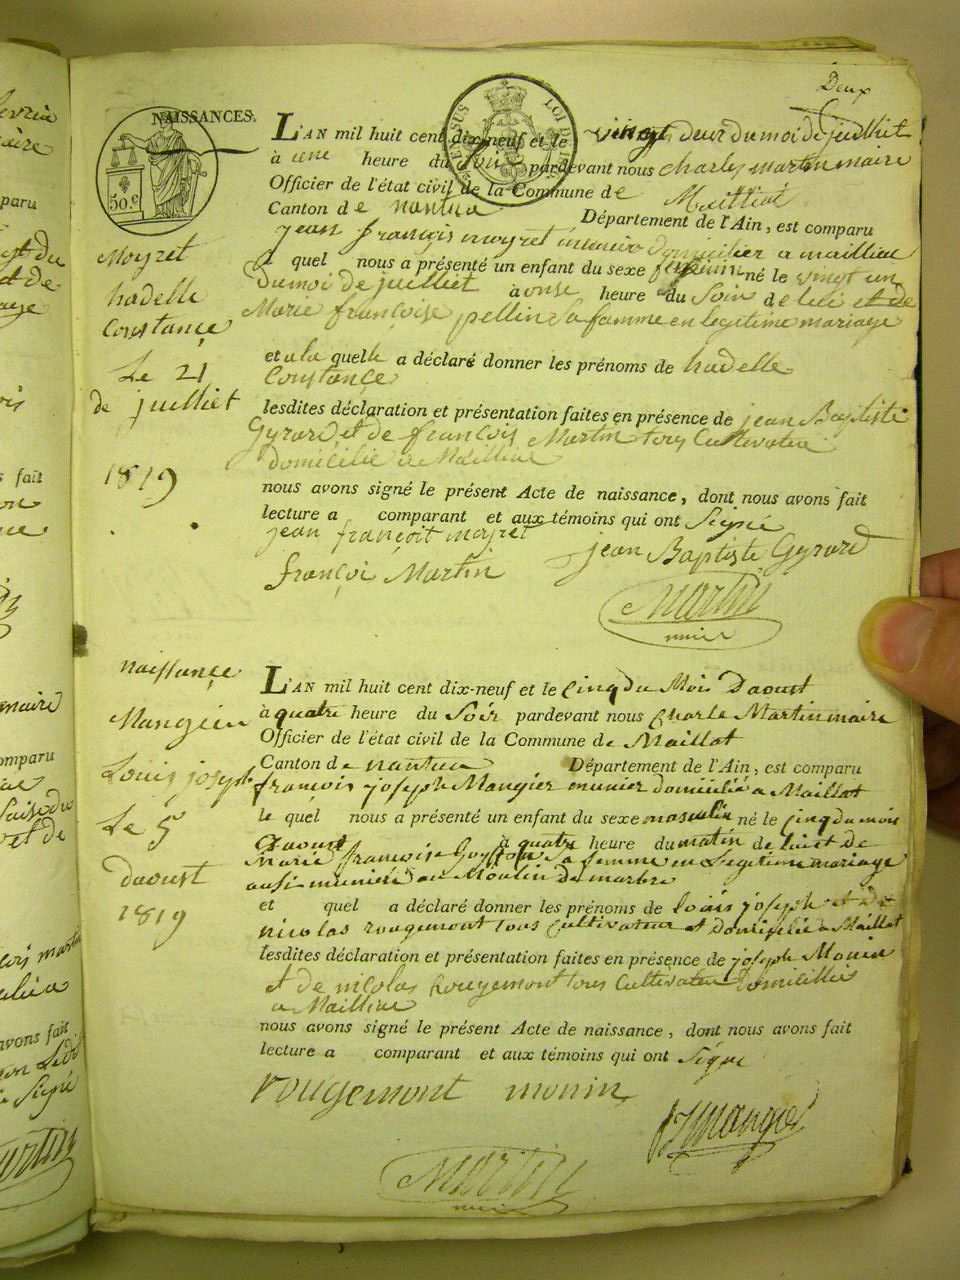 Deux
NAISSANCES.
50.c
TIMBRE LOI DE
L'AN mil huit cent dix-neuf et le vingt deux du moi de juilliet
à une heure du soir pardevant nous charles martin maire
Officier de l'état civil de la Commune de Mailliat
Canton de nantua Département de l'Ain, est comparu
jean françois moyret domicilier a mailliac
le quel nous a présenté un enfant du sexe feminin né le vingt un
du moi de juilliet à onse heure du soir de lui et de
Marie françoise pellin sa famme en legitime mariage
et a la quelle a déclaré donner les prénoms de hadelle
Constançe
lesdites déclaration et présentation faites en présence de jean Baptiste
Gyrard et de françois Martin tous Cultivateur
domicilié a Mailliac
nous avons signé le présent Acte de naissance, dont nous avons fait
lecture a comparant et aux témoins qui ont Signé
jean françoit moyret
jean Baptiste Gyrard
françoi Martin
Martin
maire
Moyret
hadelle
Constançe
Le 21
de juilliet
1819
naissançe
Mangier
Louis joseph
Le 5
daoust
1819
L'AN mil huit cent dix-neuf et le Cinq du Mois Daoust
à quatre heure du Soir pardevant nous Charle Martin maire
Officier de l'état civil de la Commune de Maillat
Canton de nantua Département de l'Ain, est comparu
françois joseph Mangier munier domicilié a Maillat
le quel nous a présenté un enfant du sexe masculin né le Cinq du mois
Daoust à quatre heure du matin de lui et de
Marie françoise Goyffon Sa femme en Legitime mariage
ausi muniere au Moulin de marbre
et quel a déclaré donner les prénoms de louis joseph et de
nicolas rougemont tous Cultivateur et Domicilié a Maillat
lesdites déclaration et présentation faites en présence de joseph Monin
et de nicolas Rougemont tous Cultivateur domicilliés
a Mailliac
nous avons signé le présent Acte de naissance, dont nous avons fait
lecture a comparant et aux témoins qui ont Signe
rougemont monin
fJ mangier
Martin
maire